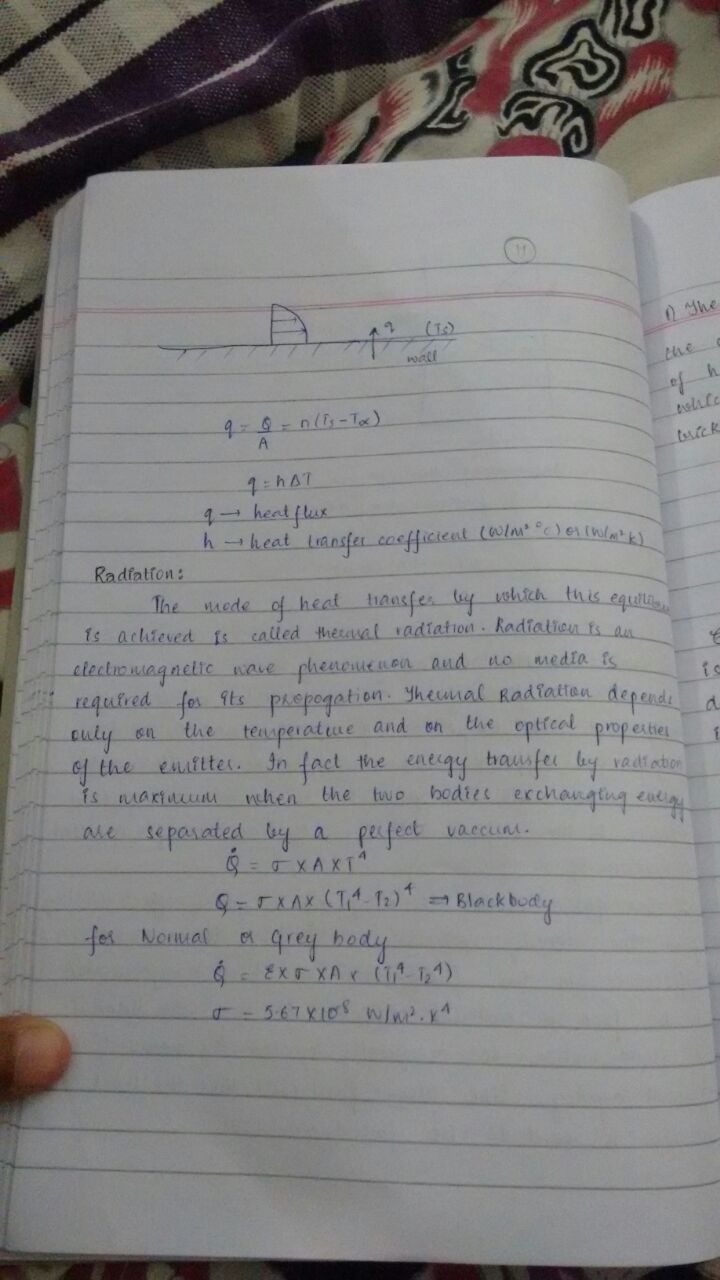 11
q (Ts)
wall
q = Q/A = h(Ts-Tα)
q = hΔT
q → heat flux
h → heat transfer coefficient (W/m² °C) or (W/m² K)
Radiation:
The mode of heat transfer by which this
is achieved is called thermal radiation. Radiation is an
electromagnetic wave phenomenon and no media is
required for its propogation. Thermal Radiation depends
only on the temperature and on the optical properties
of the emitter. In fact the energy transfer by radiation
is maximum when the two bodies exchanging energy
are separated by a perfect vaccum.
Q̇ = σ × A × T⁴
Q = σ × A × (T₁⁴-T₂)⁴ ⇒ Blackbody
for Normal or Grey body
Q̇ = ε × σ × A × (T₁⁴-T₂⁴)
σ = 5.67 × 10⁸ W/m².K⁴
1) The
the
of h
is